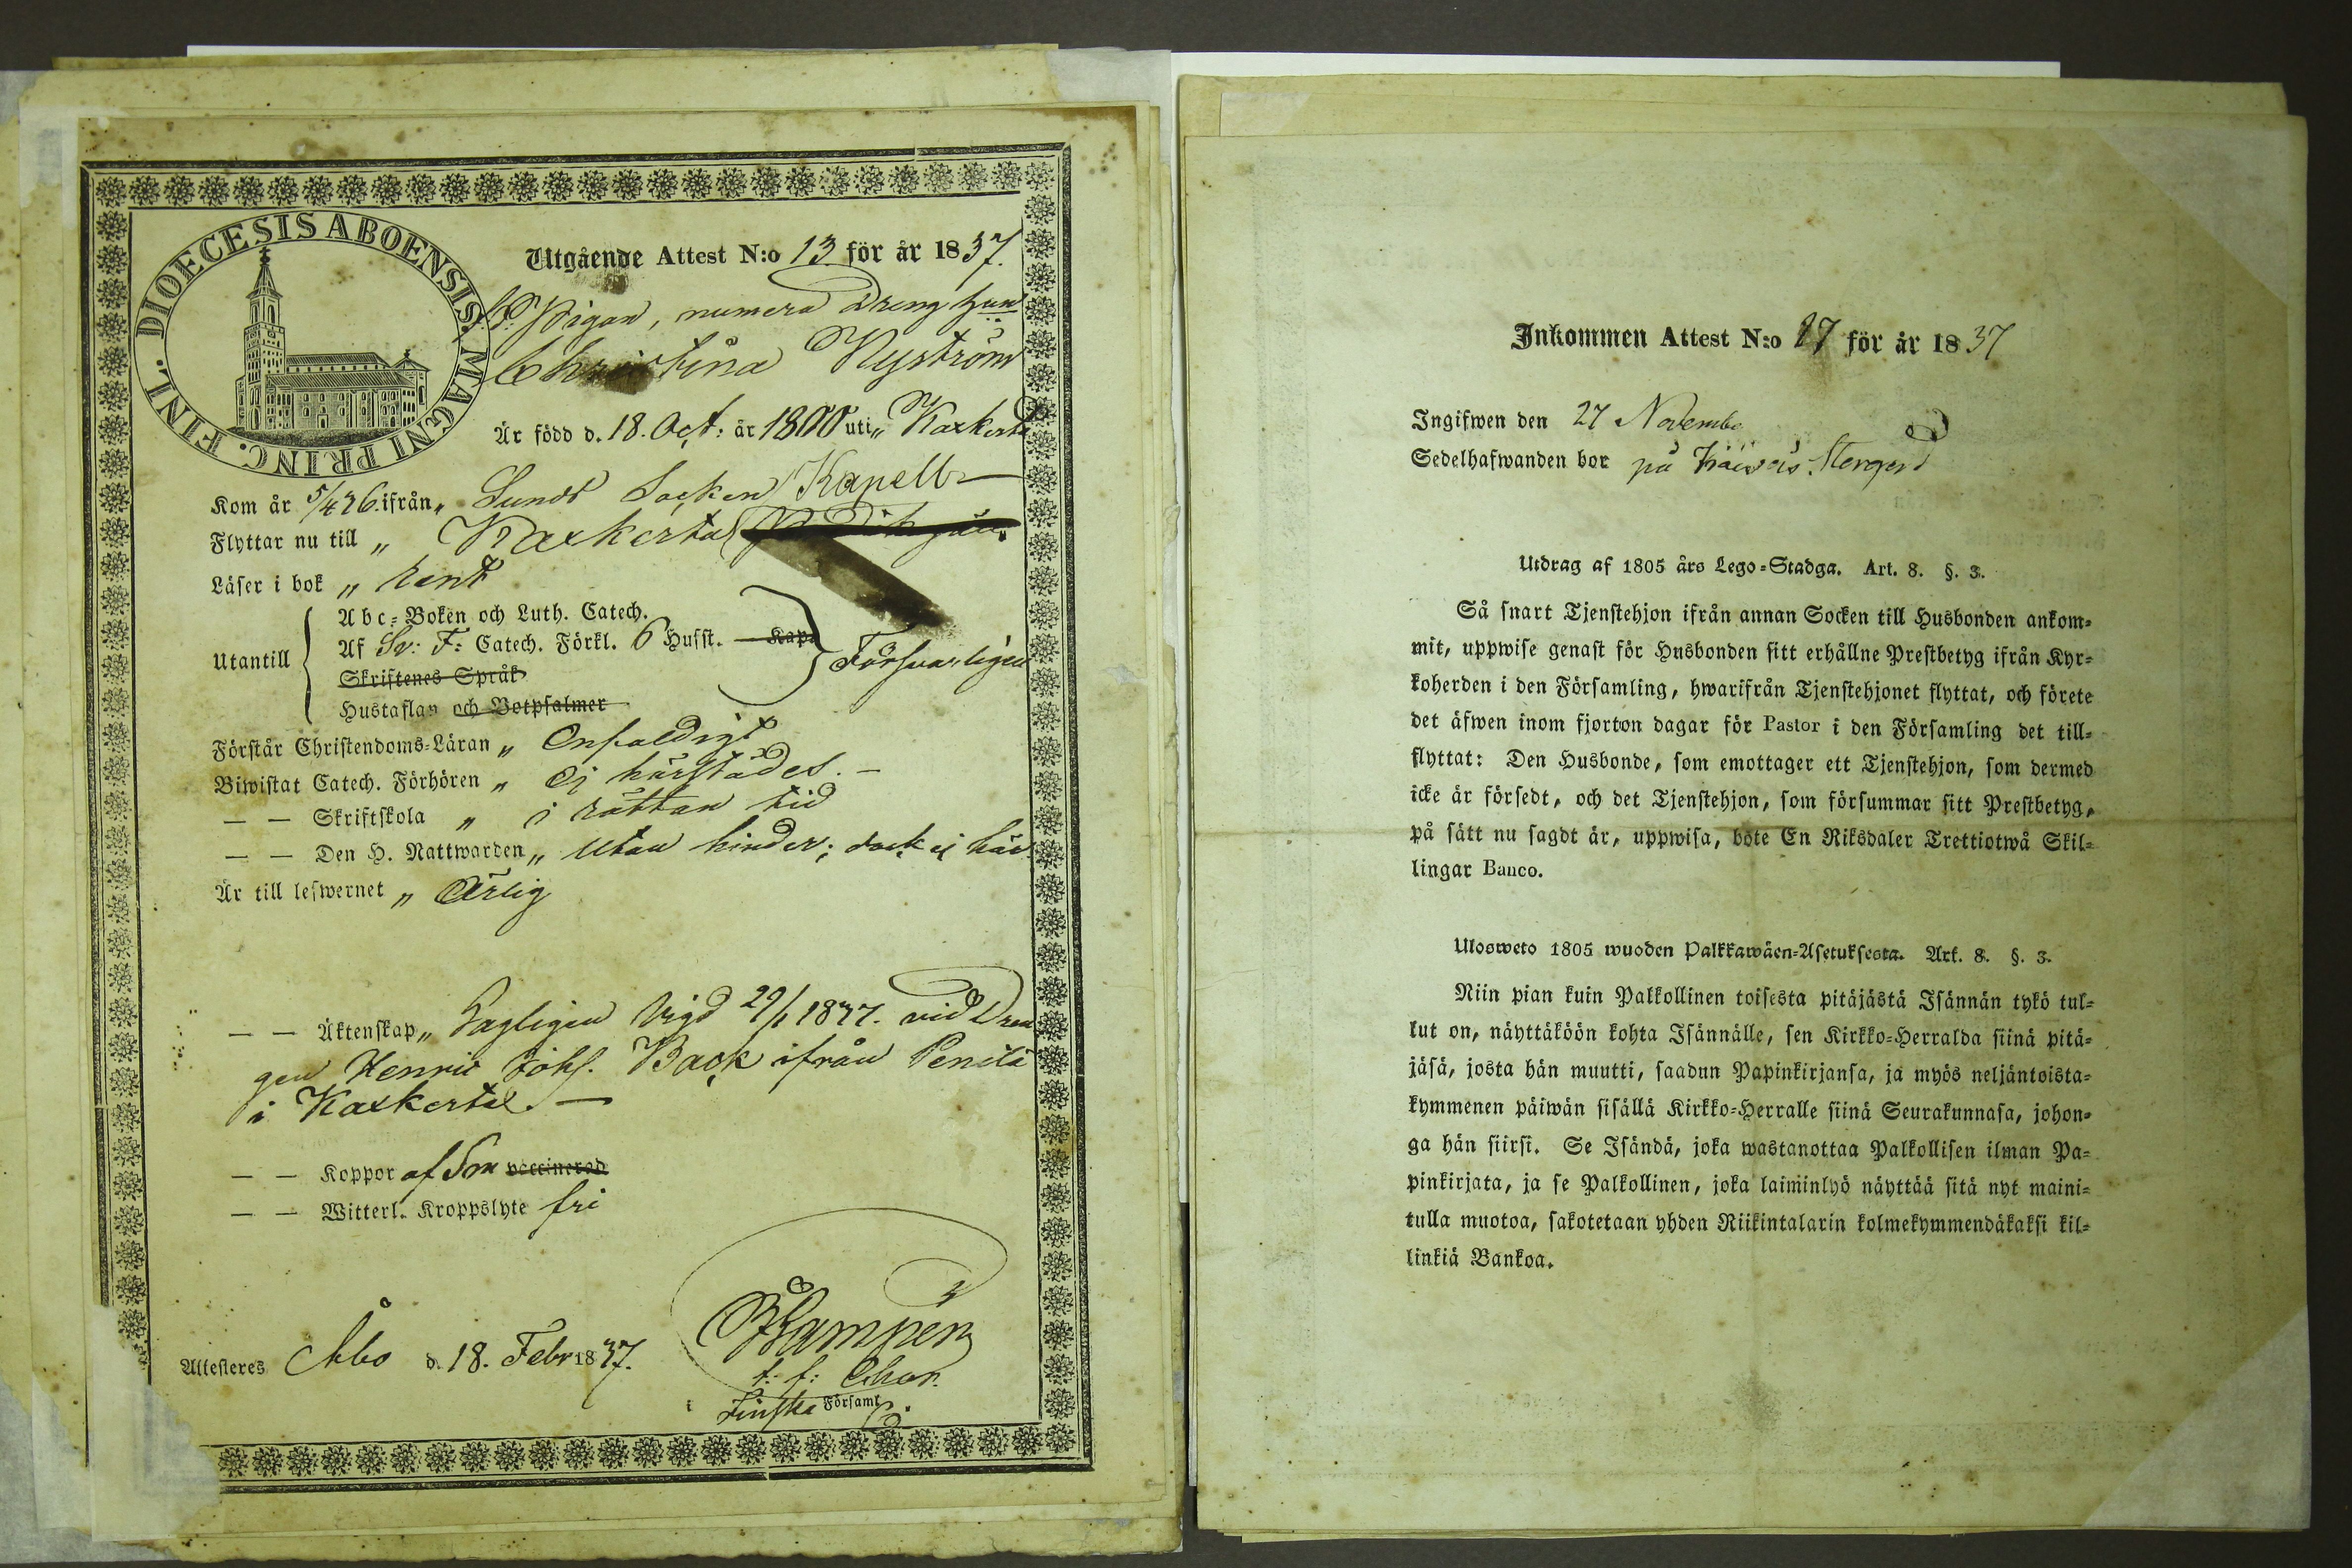 DIOECESIS ABOENSIS. MAGNI PRINC. FINL.
Utgående Attest N:o 13 för år 1837.
Pigan, numera Dreng hun
Christina Nyström
Är född d. 18. Oct: år 1800 uti „ Kaxkerta
Kom år 5/4 26. ifrån „ Lundo Socken Kapell
Flyttar nu till „ Kaxkerta
Läser i bok „ Rent
Abc-Boken och Luth. Catech.
Utantill Af Sv: F: Catech. Förkl. 6 Husst. Kap. Försvarligen
Skriftenes Språk
Hustaflan och Botpsalmer
Förstår Christendoms-Läran „ Enfaldigt
Biwistat Catech. Förhören „ Ej härstädes. —
— — Skriftskola „ i rättan tid
— — Den H. Nattwarden „ Utan hinder; dock ej här
Är till lefwernet „ Ärlig
— — Äktenskap „ Lagligen Vigd 29/1 1837. vid Dren
gen Henric Johs. Back ifrån Penilä
i Kaxkerta. —
— — Koppor af Sm vaccinerad
— — Witterl. Kroppslyte fri
Attesteres Åbo d. 18. Febr 1837.
t: f:
i Finska Församl.
Inkommen Attest N:o 27 för år 1837
Ingifwen den 27 Novembe
Sedelhafwanden bor på
Utdrag af 1805 års Lego-Stadga. Art. 8. §. 3.
Så snart Tjenstehjon ifrån annan Socken till Husbonden ankom-
mit, uppwise genast för Husbonden sitt erhållne Prestbetyg ifrån Kyr-
koherden i den Församling, hwarifrån Tjenstehjonet flyttat, och förete
det äfwen inom fjorton dagar för Pastor i den Församling det till-
flyttat: Den Husbonde, som emottager ett Tjenstehjon, som dermed
icke är försedt, och det Tjenstehjon, som försummar sitt Prestbetyg,
på sätt nu sagdt är, uppwisa, böte En Riksdaler Trettiotwå Skil-
lingar Banco.
Ulosweto 1805 wuoden Palkkawäen-Asetuksesta. Art. 8. §. 3.
Niin pian kuin Palkollinen toisesta pitäjästä Isännän tykö tul-
lut on, näyttäköön kohta Isännälle, sen Kirkko-Herralda siinä pitä-
jäsä, josta hän muutti, saadun Papinkirjansa, ja myös neljäntoista-
kymmenen päiwän sisällä Kirkko-Herralle siinä Seurakunnasa, johon-
ga hän siirsi. Se Isändä, joka wastanottaa Palkollisen ilman Pa-
pinkirjata, ja se Palkollinen, joka laiminlyö näyttää sitä nyt maini-
tulla muotoa, sakotetaan yhden Riikintalarin kolmekymmendäkaksi kil-
linkiä Bankoa.